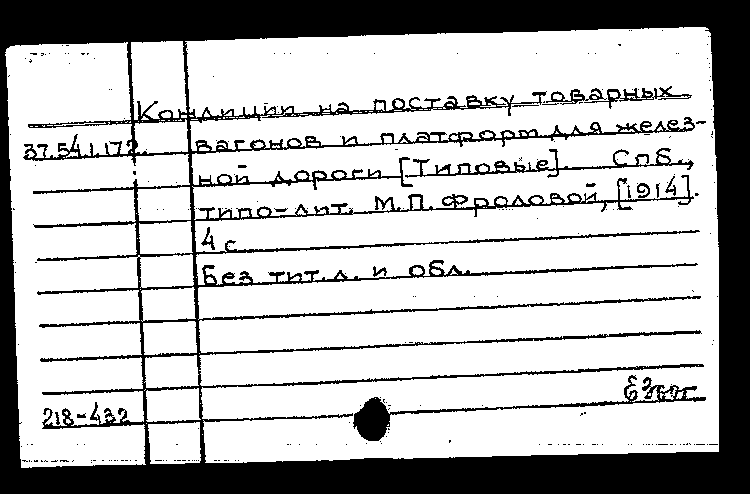 Кондиции на поставку товарных
37.54.1.172. вагонов и платформ для желез-
ной дороги [Типовые]. Спб.,
типо-лит. М.П. Фроловой, [1914].
4 с
Без тит. л. и обл.
218-432